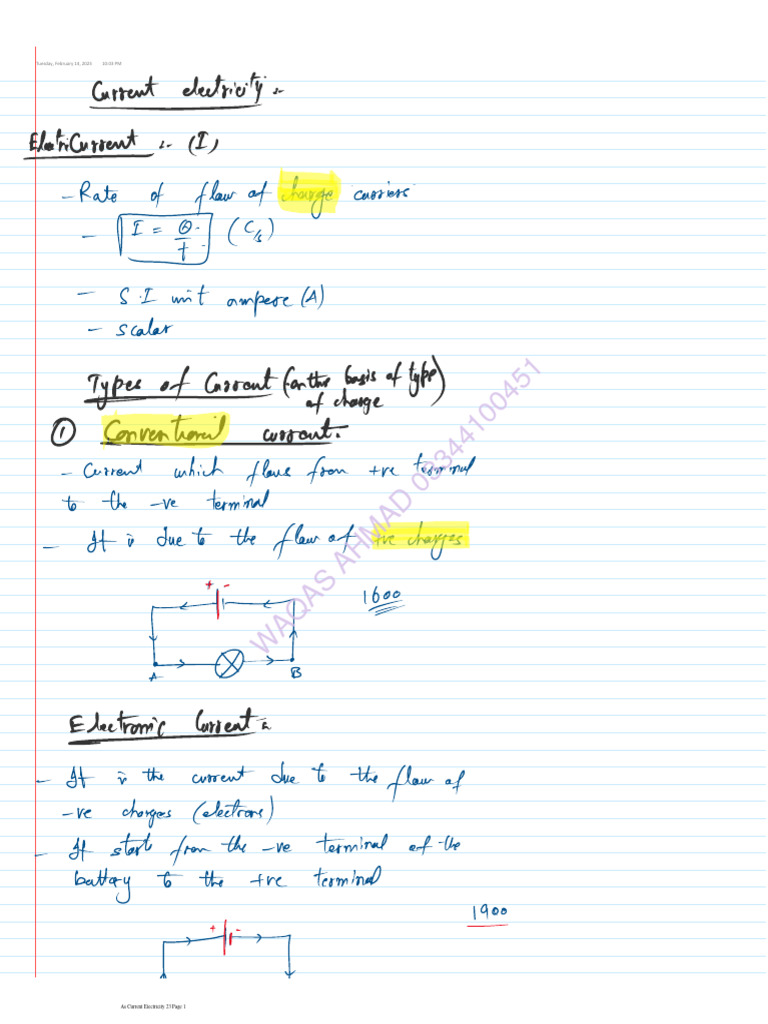 Tuesday, February 14, 2023 10:03 PM
Current electricity :-
Electric Current :- (I)
- Rate of flow of charge carriers
- I = Q/t (C/s)
- S.I unit ampere (A)
- scalar
Types of Current (on the basis of type of charge)
① Conventional current.
- Current which flows from +ve terminal
to the -ve terminal
- It is due to the flow of +ve charges
+ -
1600
A B
WAQAS AHMAD 03344100451
Electronic Current :
- It is the current due to the flow of
-ve charges (electrons)
- It start from the -ve terminal of the
battery to the +ve terminal
1900
+ -
As Current Electricity 23 Page 1